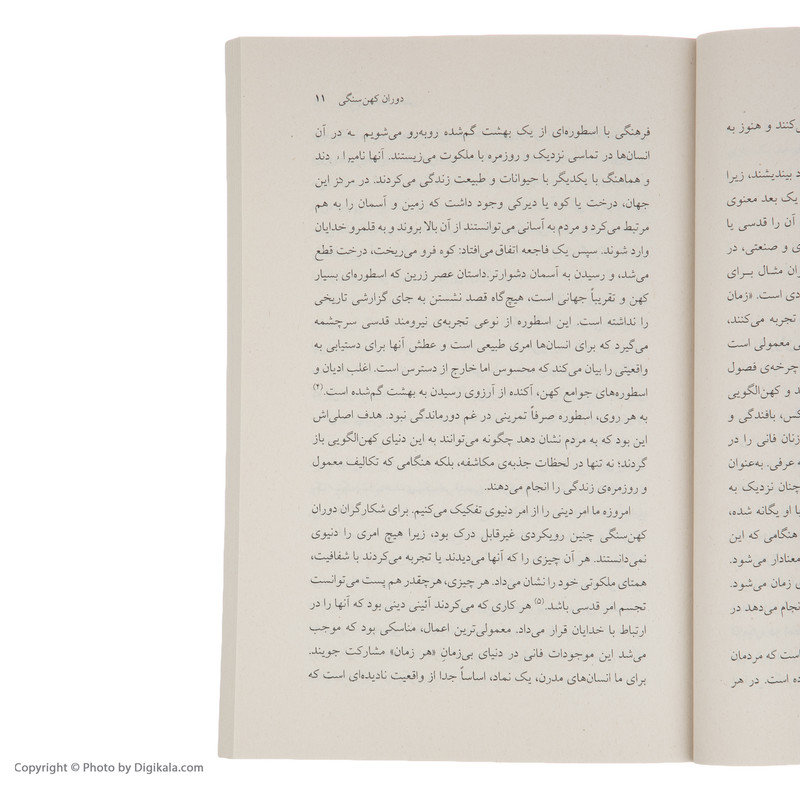 دوران کهن‌سنگی ۱۱
فرهنگی با اسطوره‌ای از یک بهشت گم‌شده روبه‌رو می‌شویم که در آن
انسان‌ها در تماسی نزدیک و روزمره با ملکوت می‌زیستند. آنها نامیرا بودند
و هماهنگ با یکدیگر با حیوانات و طبیعت زندگی می‌کردند. در مرکز این
جهان، درخت یا کوه یا دیرکی وجود داشت که زمین و آسمان را به هم
مرتبط می‌کرد و مردم به آسانی می‌توانستند از آن بالا بروند و به قلمرو خدایان
وارد شوند. سپس یک فاجعه اتفاق می‌افتاد: کوه فرو می‌ریخت، درخت قطع
می‌شد، و رسیدن به آسمان دشوارتر.داستان عصر زرین که اسطوره‌ای بسیار
کهن و تقریباً جهانی است، هیچ‌گاه قصد نشستن به جای گزارشی تاریخی
را نداشته است. این اسطوره از نوعی تجربه‌ی نیرومند قدسی سرچشمه
می‌گیرد که برای انسان‌ها امری طبیعی است و عطش آنها برای دستیابی به
واقعیتی را بیان می‌کند که محسوس اما خارج از دسترس است. اغلب ادیان و
اسطوره‌های جوامع کهن، آکنده از آرزوی رسیدن به بهشت گم‌شده است.(۴)
به هر روی، اسطوره صرفاً تمرینی در غم دورماندگی نبود. هدف اصلی‌اش
این بود که به مردم نشان دهد چگونه می‌توانند به این دنیای کهن‌الگویی باز
گردند؛ نه تنها در لحظات جذبه‌ی مکاشفه، بلکه هنگامی که تکالیف معمول
و روزمره‌ی زندگی را انجام می‌دهند.
امروزه ما امر دینی را از امر دنیوی تفکیک می‌کنیم. برای شکارگران دوران
کهن‌سنگی چنین رویکردی غیرقابل درک بود، زیرا هیچ امری را دنیوی
نمی‌دانستند. هر آن چیزی را که آنها می‌دیدند یا تجربه می‌کردند با شفافیت،
همتای ملکوتی خود را نشان می‌داد. هر چیزی، هرچقدر هم پست می‌توانست
تجسم امر قدسی باشد.(۵) هر کاری که می‌کردند آئینی دینی بود که آنها را در
ارتباط با خدایان قرار می‌داد. معمولی‌ترین اعمال، مناسکی بود که موجب
می‌شد این موجودات فانی در دنیای بی‌زمانِ «هر زمان» مشارکت جویند.
برای ما انسان‌های مدرن، یک نماد، اساساً جدا از واقعیت نادیده‌ای است که
می‌کنند و هنوز به
بیندیشند، زیرا
یک بعد معنوی
آن را قدسی یا
و صنعتی، در
مثال برای
است. «زمان
تجربه می‌کنند،
معمولی است
چرخه‌ی فصول
و کهن‌الگویی
بافندگی و
زنان فانی را در
عرفی. به‌عنوان
چنان نزدیک به
با او یگانه شده،
هنگامی که این
معنادار می‌شود.
زمان می‌شود.
انجام می‌دهد در
است که مردمان
است. در هر
Copyright © Photo by Digikala.com